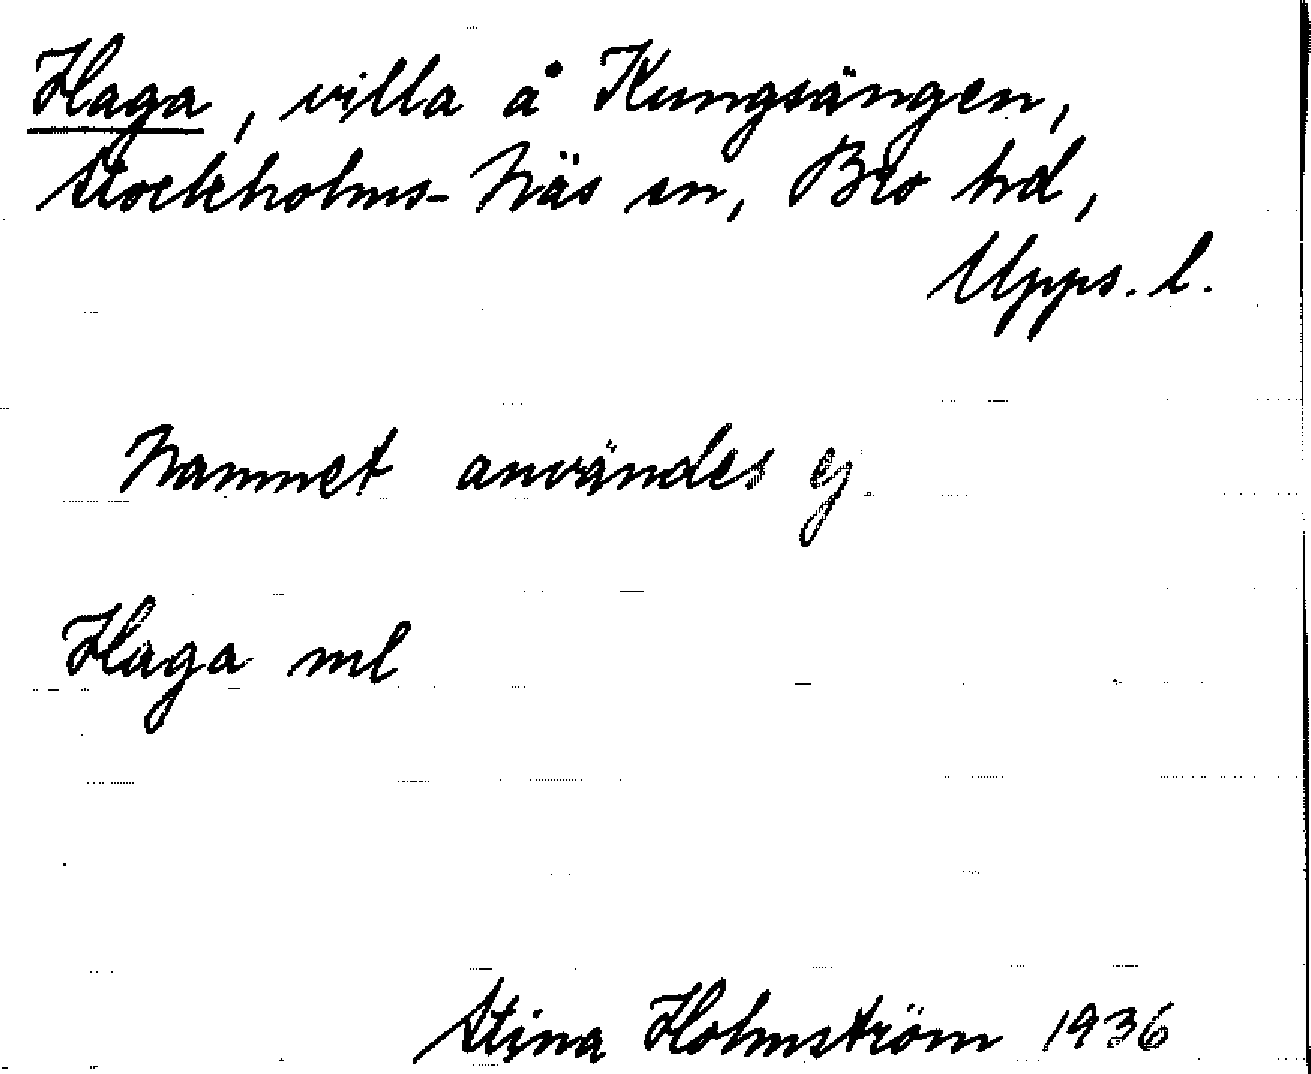 Haga, villa å Kungsängen,
Stockholms-Näs sn, Bro hd,
Upps. l.
Namnet användes ej
Haga ml
Stina Holmström 1936